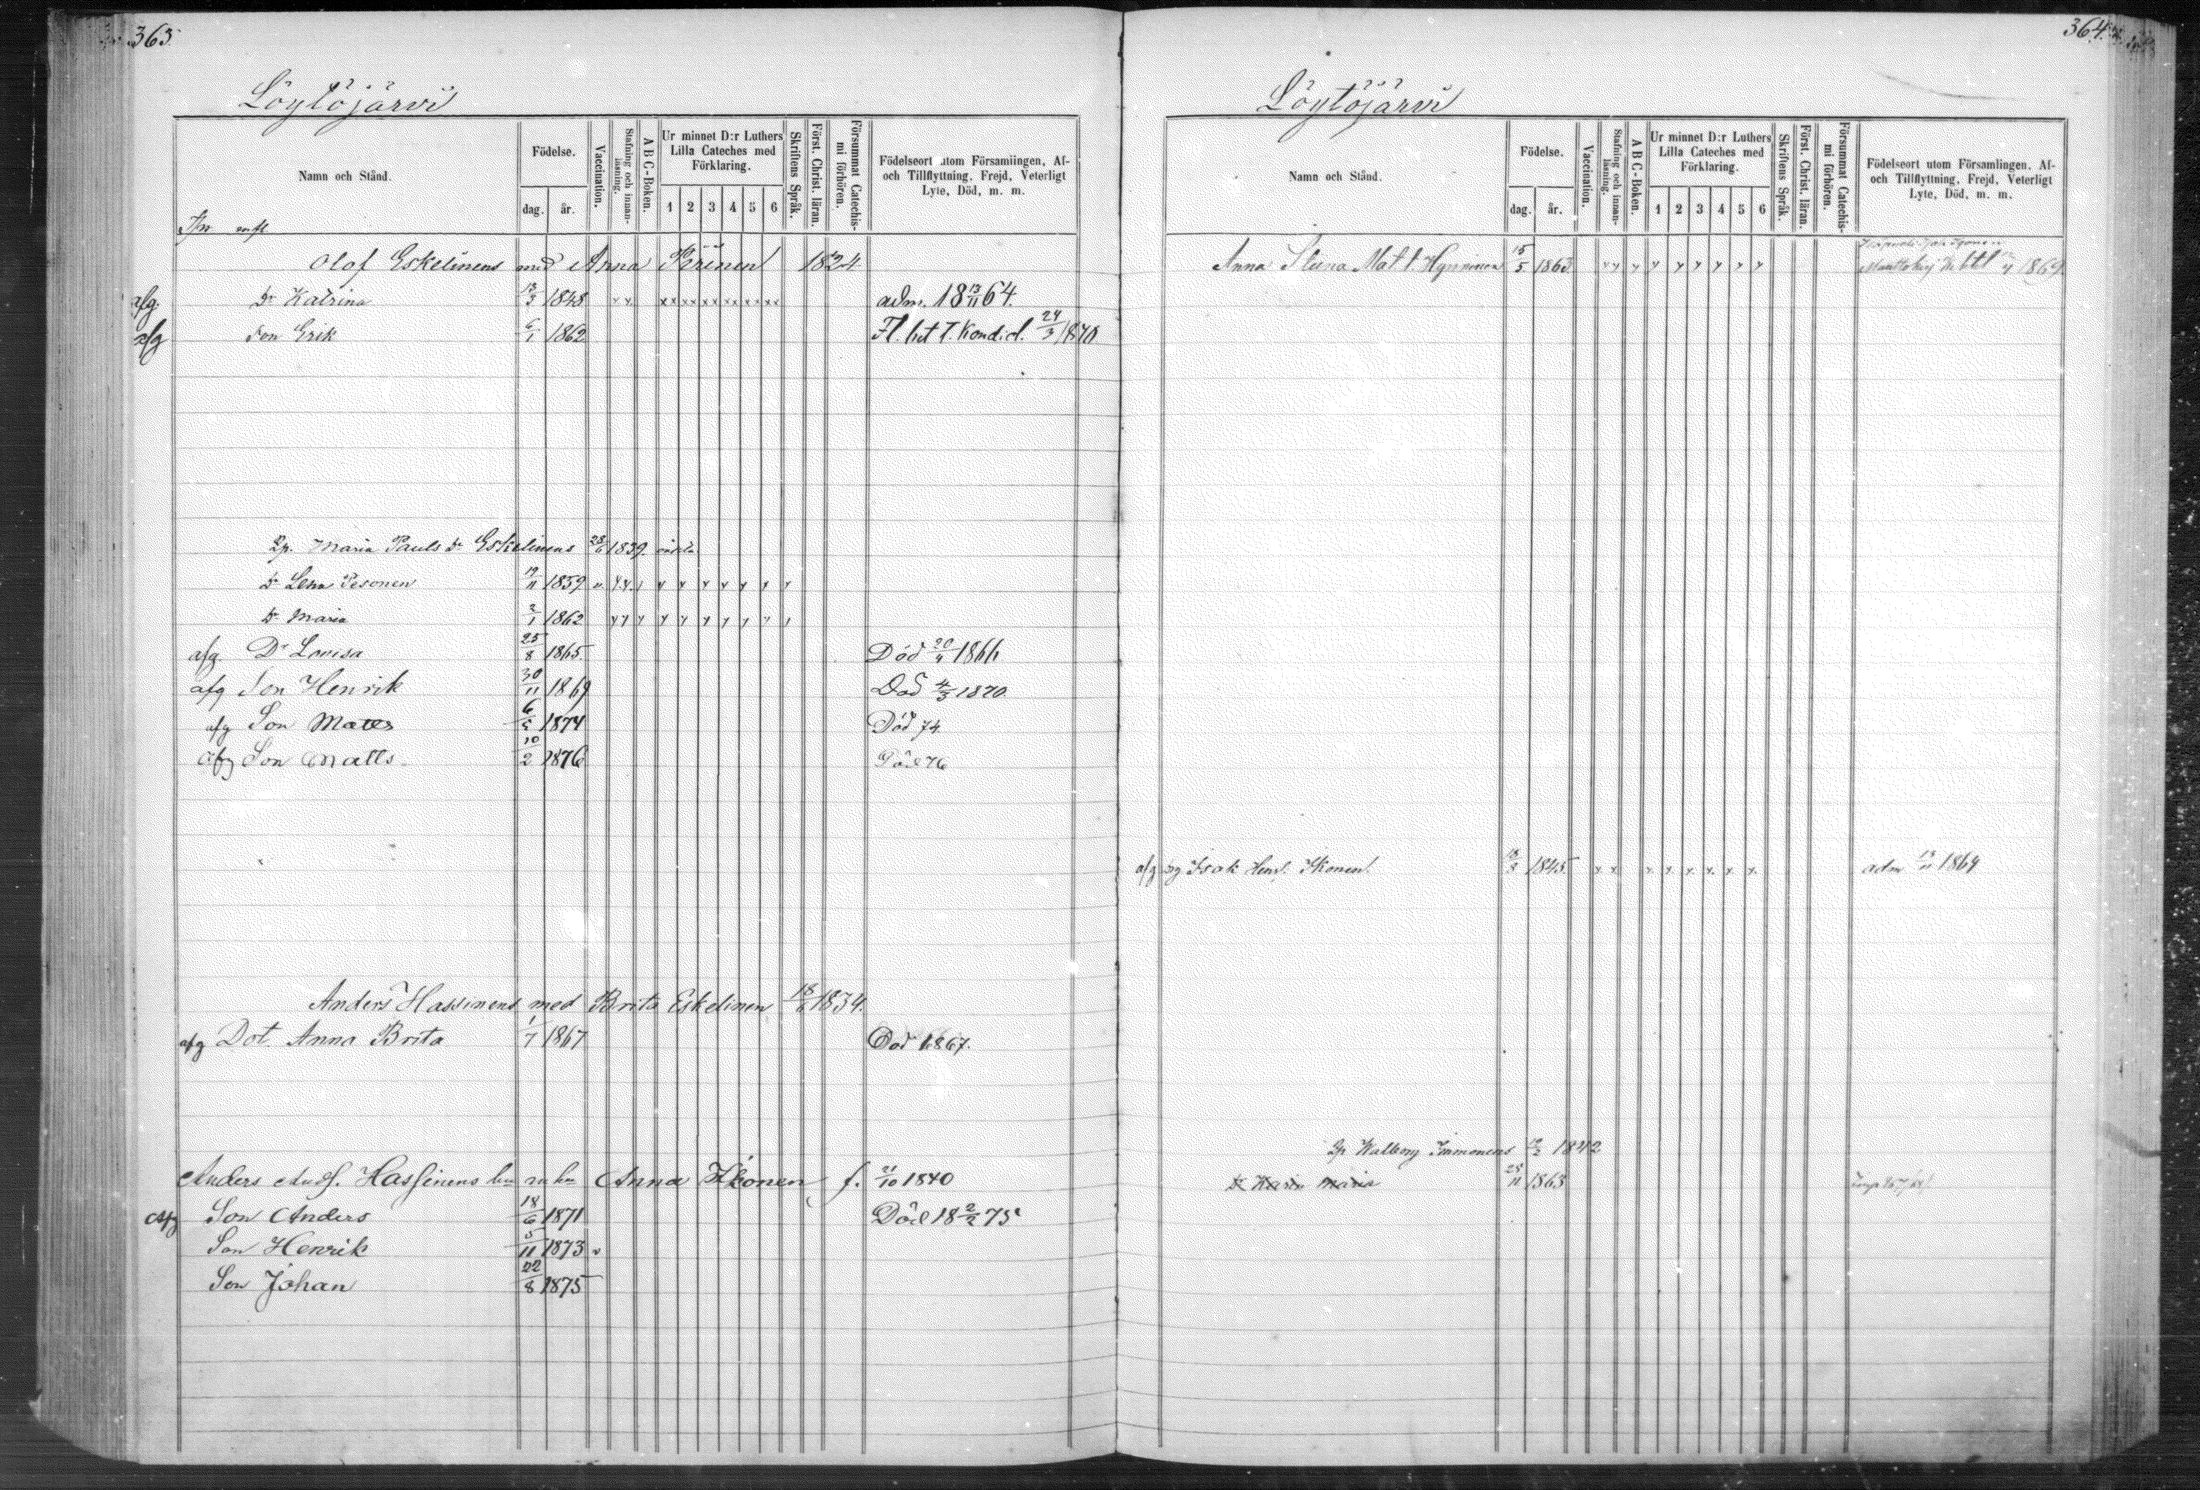 363
Löytöjärvi
Namn och Stånd.
Födelse.
dag. år.
Vaccination.
Stafning och innanläsning.
A B C-Boken.
Ur minnet D:r Luthers Lilla Cateches med Förklaring.
1 2 3 4 5 6
Skriftens Språk.
Först. Christ. läran.
Försummat Catechismi förhören.
Födelseort utom Församlingen, Af- och Tillflyttning, Frejd, Veterligt Lyte, Död, m. m.
Olof Eskelinens med Anna 1824
afg. Dr Katrina 13/3 1848 adm. 18 13/11 64.
afg Son Erik 6/1 1862 Fl. bet. t. 24/3 1870
Maria Pauls dr Eskelinens 28/6 1839.
dr Lena Pesonen 19/11 1859
dr Maria 2/1 1862
afg Dr Lovisa 25/8 1865. Död 20/4 1866
afg Son Henrik 30/11 1869 Död 4/3 1870.
afg Son Matts 6/5 1874 Död 74
afg Son Matts 10/2 1876 Död 76
Anders Hassinens med Brita Eskelinen 18/6 1834.
afg Dot. Anna Brita 1/7 1867 Död 1867.
Anders And. Hassinens hu Anna Ikonen f. 21/10 1840
afg Son Anders 18/6 1871 Död 18 2/2 75
Son Henrik 5/11 1873 v
Son Johan 22/8 1875
364
Löytöjärvi
Namn och Stånd.
Födelse.
dag. år.
Vaccination.
Stafning och innanläsning.
A B C-Boken.
Ur minnet D:r Luthers Lilla Cateches med Förklaring.
1 2 3 4 5 6
Skriftens Språk.
Först. Christ. läran.
Försummat Catechismi förhören.
Födelseort utom Församlingen, Af- och Tillflyttning, Frejd, Veterligt Lyte, Död, m. m.
Anna Stina Mat t. Hynninen 15/5 1863 1869
afg Isak Henr. Ikonen 1845. adm 13/11 1864
Walborg Immonens 1842
dr Karin Maria 1863